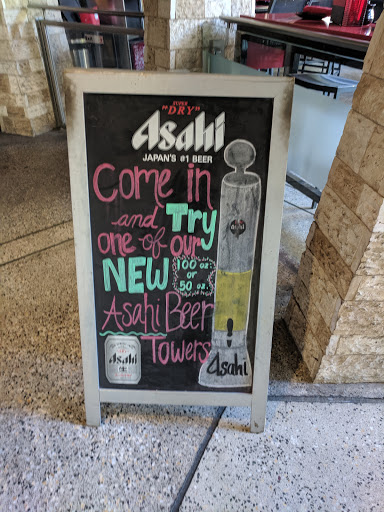 SUPER
"DRY"
Asahi
JAPAN'S #1 BEER
Come in
and Try
one of our
NEW 100 oz.
or
50 oz.
Asahi Beer
Towers
Asahi